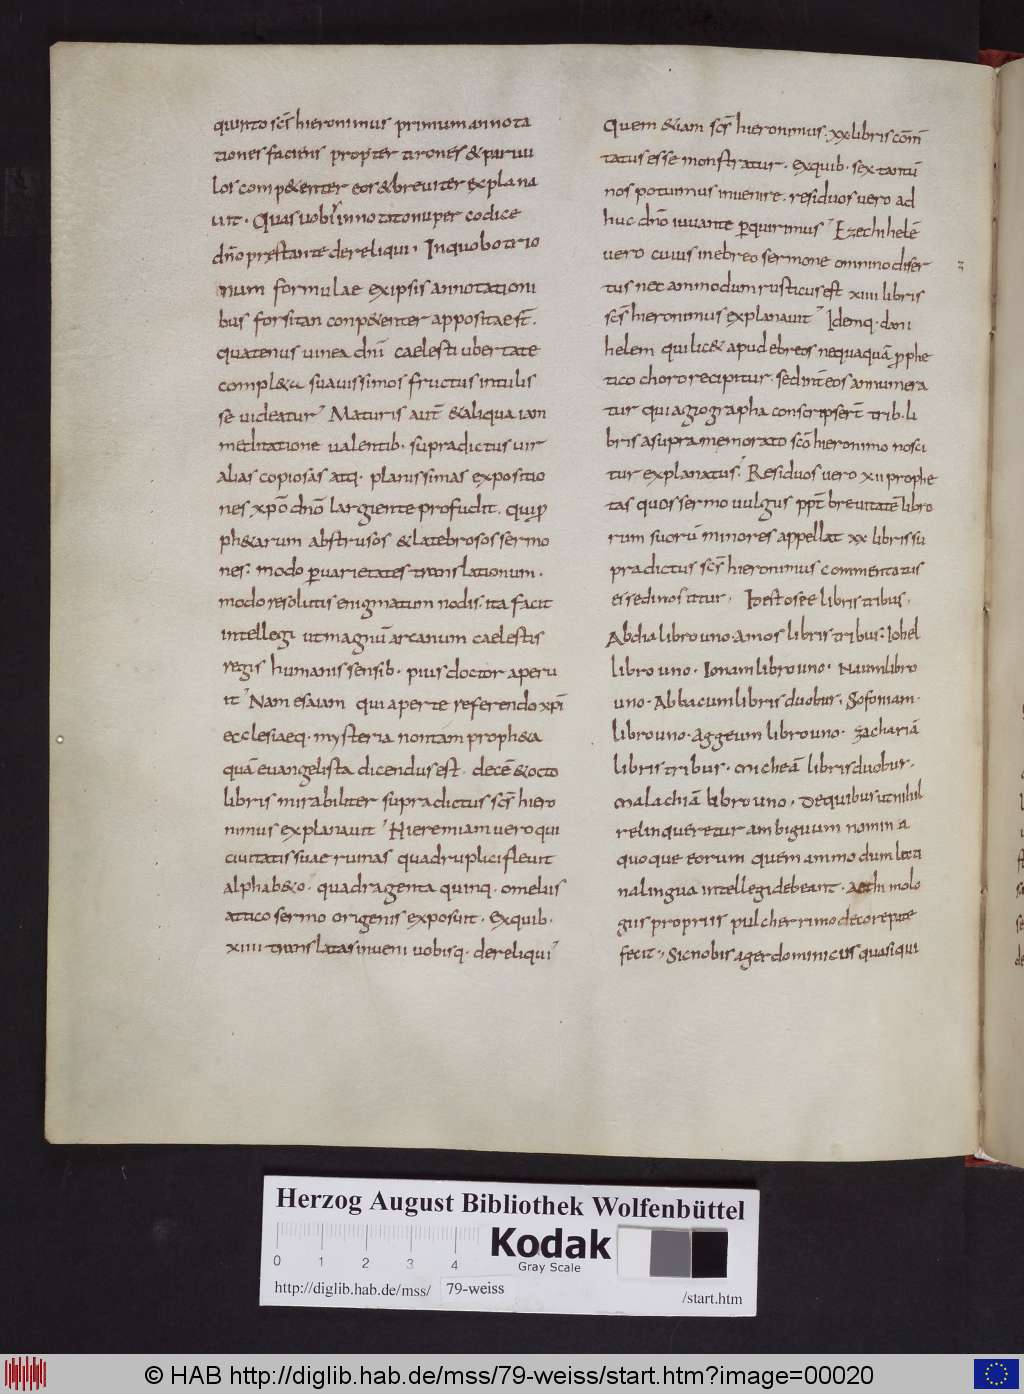 quinto scs̄ hieronimus primum annota
tiones faciens propter tirones & paruu
los comp&enter eos & breuiter explana
uit. Quas uobis in notato nuper codice
dn̄o prestante dereliqui. In quo botrio
num formulae ex ipsis annotationi
bus forsitan conp&enter appositae st̄.
quatenus uinea dnī caelesti ubertate
compl&a suauissimos fructus intulis
se uideatur. Maturis aut̄ & aliqua iam
meditatione ualentib. supradictus uir
alias copiosas atq. planissimas expositio
nes xp̄o dn̄o largiente profudit. qui ꝓ
ph&arum abstrusos & latebrosos sermo
nes. modo ꝑ uarietates translationum.
modo resolutis enigmatum nodis. ita facit
intellegi ut magnū arcanum caelestis
regis humanis sensib. pius doctor aperu
it. Nam esaiam qui aperte referendo xp̄i
ecclesiaeq. mysteria non tam proph&a
quā euangelista dicendus est. decē & octo
libris mirabiliter supradictus scs̄ hiero
nimus explanauit. Hieremiam uero qui
ciuitatis suae ruinas quadruplici fleuit
alphab&o. quadragenta quinq. omelus
attico sermo origenis exposuit. Ex quib.
xiiii translatas inueni uobisq. dereliqui.
Quem &iam scs̄ hieronimus xx libris com̄
tatus esse monstratur. ex quib. sex tantū
nos potuimus inuenire. residuos uero ad
huc dn̄o iuuante ꝑquirimus. Ezechihelē
uero cuius in ebreo sermone omnino diser
tus nec ammodum rusticus est xiiii libris
scs̄ hieronimus explanauit. Idemq. dani
helem qui lic& apud ebreos nequaquā ꝓphe
tico choro recipitur. sed int̄ eos annumera
tur qui agiographa conscripser̄t trib. li
bris a supra memorato scō hieronimo nosci
tur explanatus. Residuos uero xii prophe
tas quos sermo uulgus ppt̄ breuitatē libro
rum suorū minores appellat xx libris su
pradictus scs̄ hieronimus commentatus
esse dinoscitur. Id est osee libris tribus.
Abdia libro uno. amos libris tribus. Iohel
libro uno. Ionam libro uno. Naum libro
uno. Abbacum libris duobus. Sofoniam
libro uno. aggeum libro uno. zachariā
libris tribus. micheā libris duobus.
malachiā libro uno. De quibus ut nihil
relinqueretur ambiguum nomina
quoque eorum quem ammodum lati
na lingua intellegi debeant. aethimolo
gus propriis pulcherrimo decore pate
fecit. Sic nobis ager dominicus quasi qui
Herzog August Bibliothek Wolfenbüttel
0 1 2 3 4
Kodak
Gray Scale
http://diglib.hab.de/mss/ 79-weiss /start.htm
© HAB http://diglib.hab.de/mss/79-weiss/start.htm?image=00020